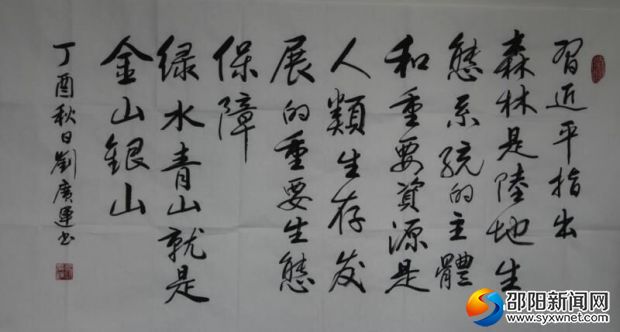 習近平指出
森林是陸地生
態系統的主體
和重要資源是
人類生存发
展的重要生態
保障
绿水青山就是
金山银山
丁酉秋日劉廣運书
邵阳新闻网
www.syxwnet.com